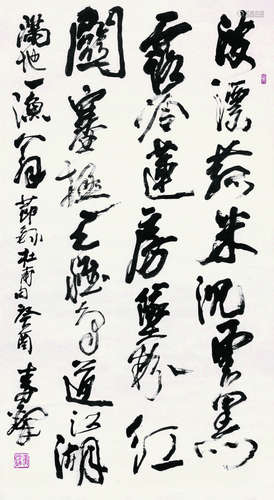 波漂菰米沈雲黑
露冷蓮房墜粉紅
關塞極天惟鳥道江湖
滿地一漁翁 節錄杜甫句 癸酉